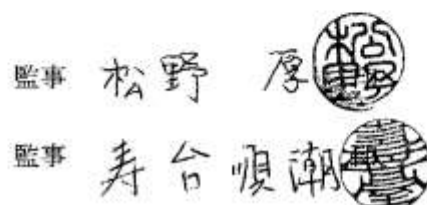 監事 松野 厚
監事 寿台順潮